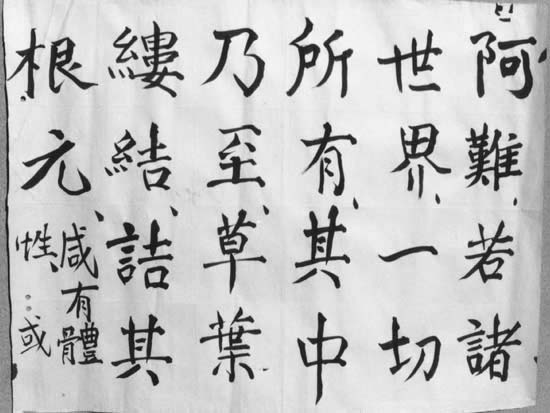 阿難、若諸
世界、一切
所有、其中
乃至、草葉
縷結、詰其
根元、
咸有體
性、…或